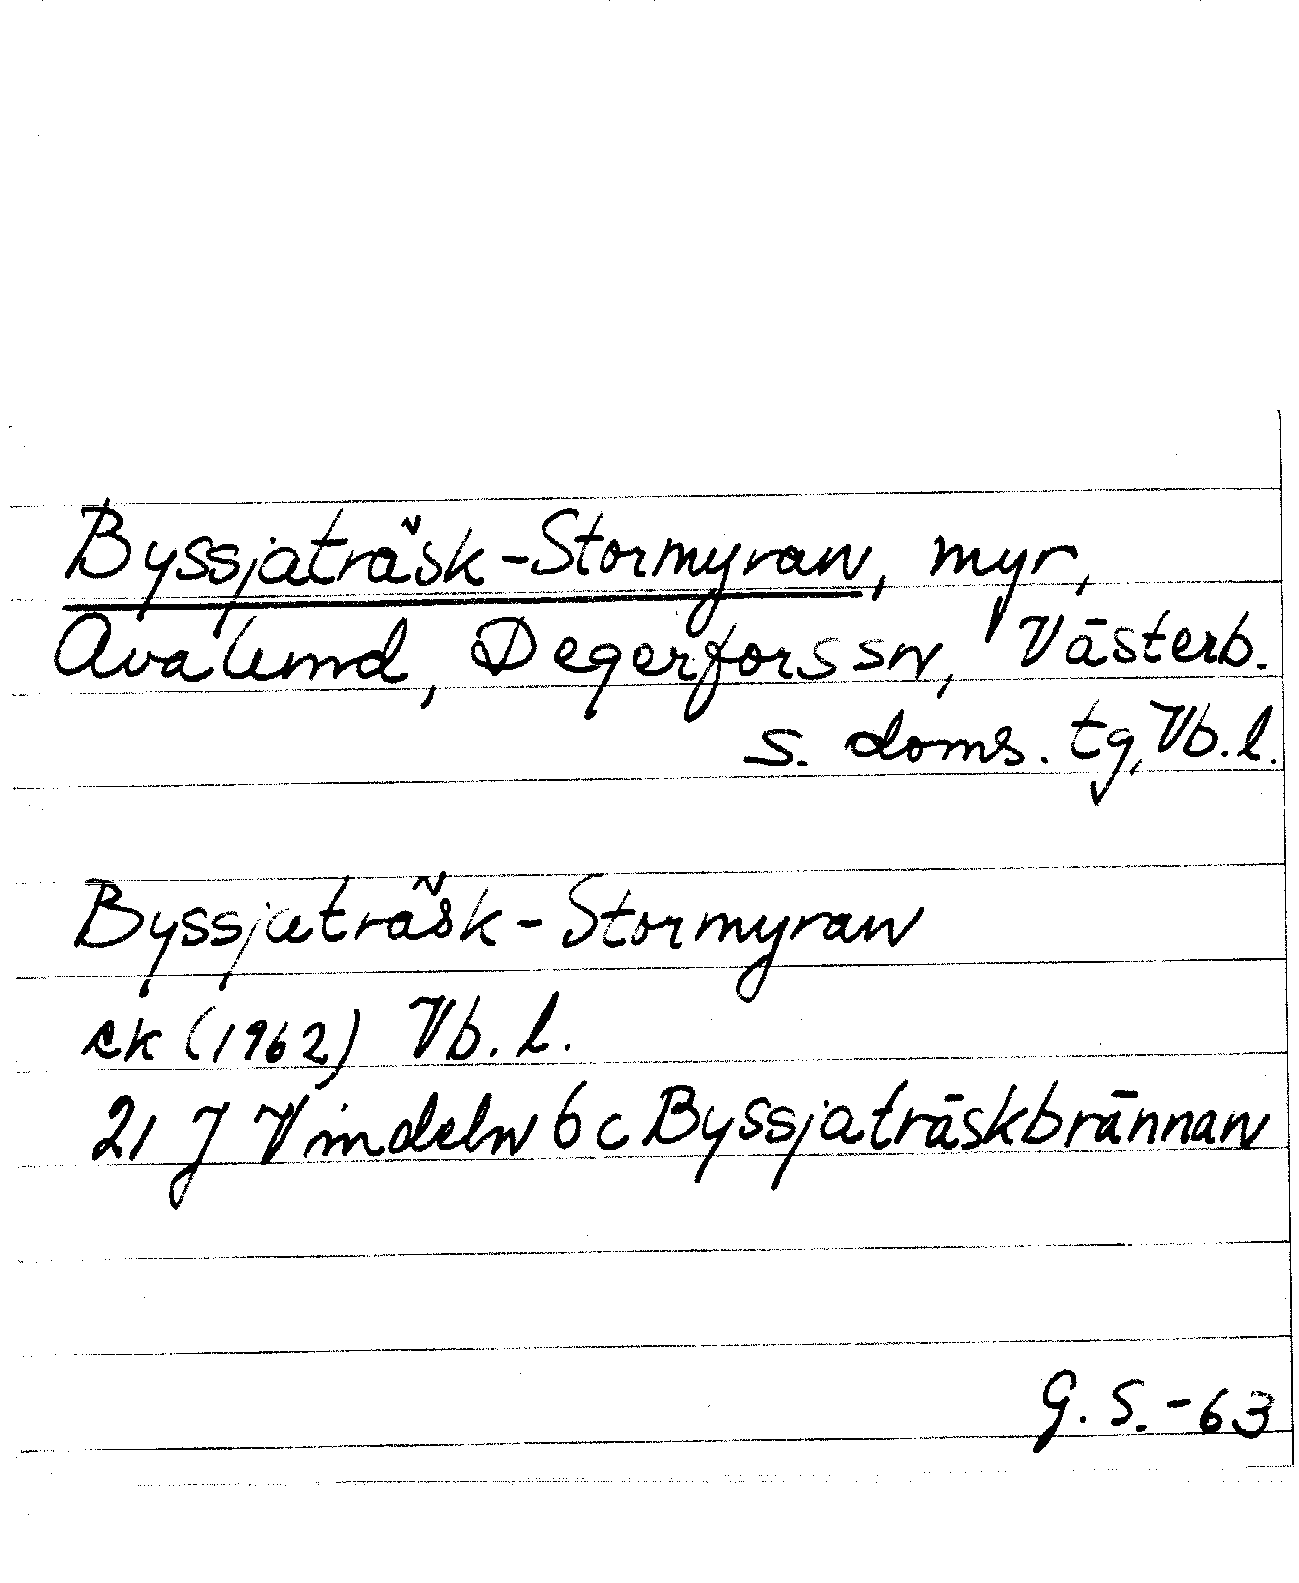 Byssjaträsk-Stormyran, myr,
Avalund, Degerfors sn, Västerb.
s. doms. tg, Vb. l.
Byssjaträsk-Stormyran
ek (1962) Vb. l.
21 J Vindeln 6 c Byssjaträskbrännan
G. S. -63